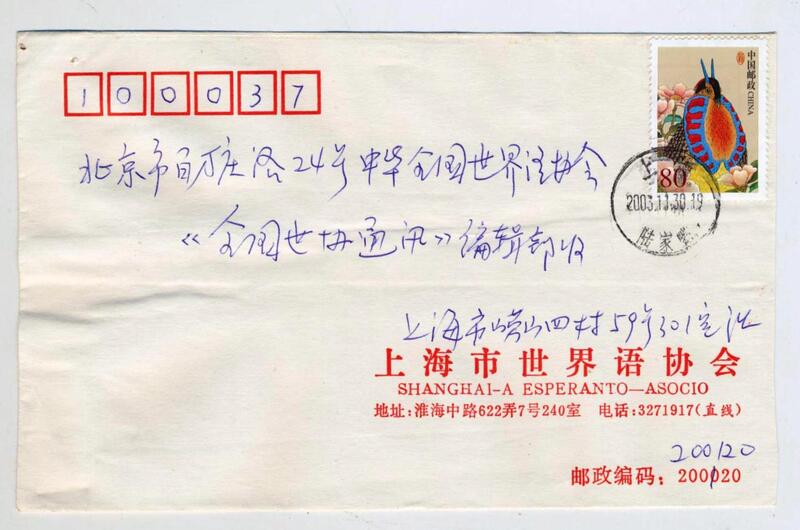 100037
中国邮政 CHINA
80
北京市百万庄路24号中华全国世界语协会
上海
2003.11.30.19
陆家嘴
《全国世协通讯》编辑部收
上海市崂山四村59号301室
上海市世界语协会
SHANGHAI-A ESPERANTO—ASOCIO
地址:淮海中路622弄7号240室 电话:3271917(直线)
200120
邮政编码:200120